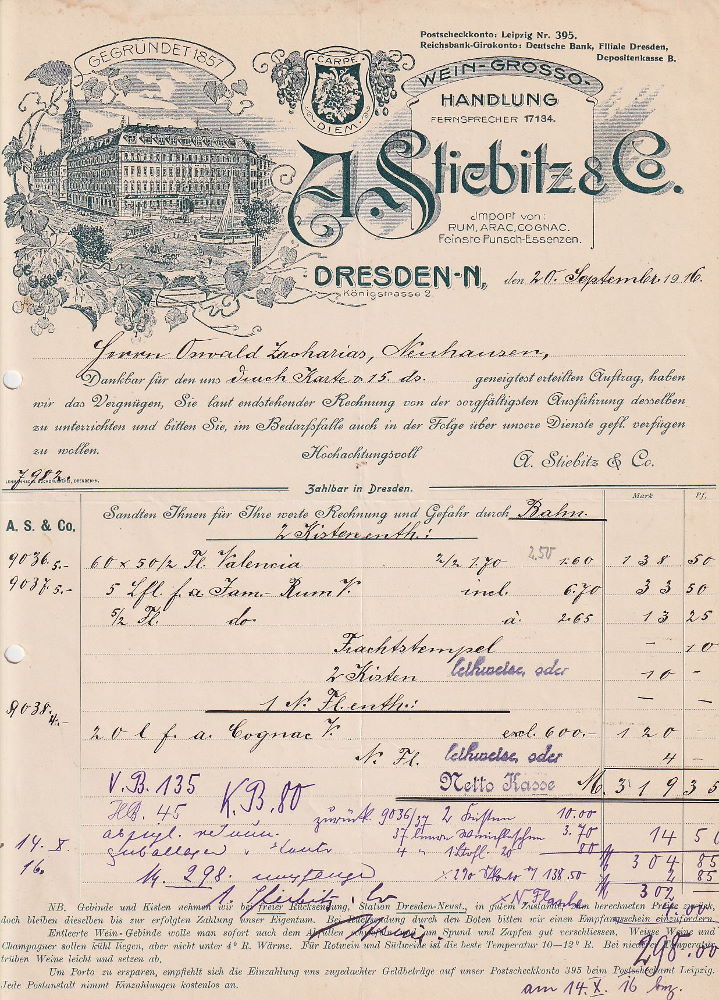 Postscheckkonto: Leipzig Nr. 395.
Reichsbank-Girokonto: Deutsche Bank, Filiale Dresden,
Depositenkasse B.
GEGRÜNDET 1857
CARPE
DIEM
WEIN-GROSSO-
HANDLUNG
FERNSPRECHER 17134.
A. Stiebitz & Co.
Import von:
RUM, ARAC, COGNAC.
Feinste Punsch-Essenzen.
DRESDEN-N., den 20. September 1916.
Königstrasse 2.
Herrn Oswald Zacharias, Neuhausen,
Dankbar für den uns durch Karte v 15. ds. geneigtest erteilten Auftrag, haben
wir das Vergnügen, Sie laut endstehender Rechnung von der sorgfältigsten Ausführung desselben
zu unterrichten und bitten Sie, im Bedarfsfalle auch in der Folge über unsere Dienste gefl. verfügen
zu wollen.
Hochachtungsvoll
A. Stiebitz & Co.
7982
Zahlbar in Dresden.
Mark Pf.
A. S. & Co.
Sandten Ihnen für Ihre werte Rechnung und Gefahr durch Bahn.
2 Kisten enth:
9036 5.- 60 x 50/2 Fl. Valencia 2/2 1.70 2,50 1.60 138 50
9037 5.- 5 Lfl. f. a Jam.- Rum V. incl. 6.70 33 50
5/2 Fl. do à. 2.65 13 25
Frachtstempel - 10
2 Kisten leihweise, oder 10 -
1 N. Fl. enth: - -
9038 4.- 20 l f. a. Cognac V. excl. 600.- 120 -
N. Fl. leihweise, oder 4 -
Netto Kasse M. 319 35
V. B. 135
K. B. 80
HB. 45
zurück 9036/37 2 Kisten 10.00
37 leere 3.70
80 14 50
14. X. 16.
M 304 85
2 85
M. 298.
M 302 -
N Flasche 4 00
A. Stiebitz & Co
NB. Gebinde und Kisten nehmen wir bei freier Rücksendung, Station Dresden-Neust., in gutem Zustande zum berechneten Preise zurück,
doch bleiben dieselben bis zur erfolgten Zahlung unser Eigentum. Bei Rücksendung durch den Boten bitten wir einen Empfangsschein einzufordern.
Entleerte Wein-Gebinde wolle man sofort nach dem Abfüllen mit Spund und Zapfen gut verschliessen, Weisse Weine und
Champagner sollen kühl liegen, aber nicht unter 4° R. Wärme. Für Rotwein und Südweine ist die beste Temperatur 10—12° R. Bei niedriger Temperatur
trüben Weine leicht und setzen ab.
298.00
Um Porto zu ersparen, empfiehlt sich die Einzahlung uns zugedachter Geldbeträge auf unser Postscheckkonto 395 beim Postscheckamt Leipzig.
Jede Postanstalt nimmt Einzahlungen kostenlos an.
am 14. X. 16 bez.